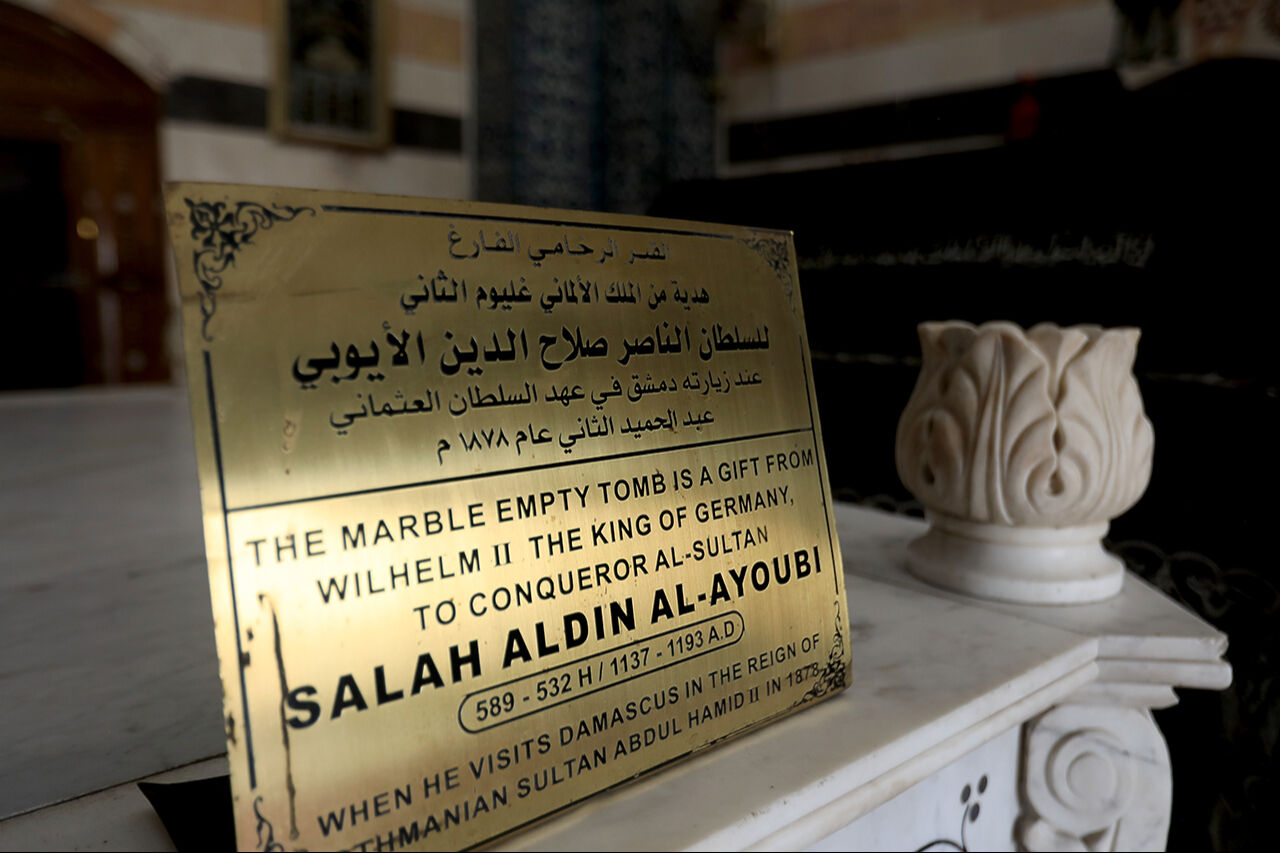 القبر الرخامي الفارغ
هدية من الملك الألماني غليوم الثاني
للسلطان الناصر صلاح الدين الأيوبي
عند زيارته دمشق في عهد السلطان العثماني
عبد الحميد الثاني عام ١٨٧٨ م
THE MARBLE EMPTY TOMB IS A GIFT FROM
WILHELM II THE KING OF GERMANY,
TO CONQUEROR AL-SULTAN
SALAH ALDIN AL-AYOUBI
589 - 532 H / 1137 - 1193 A.D
WHEN HE VISITS DAMASCUS IN THE REIGN OF
OTHMANIAN SULTAN ABDUL HAMID II IN 1878